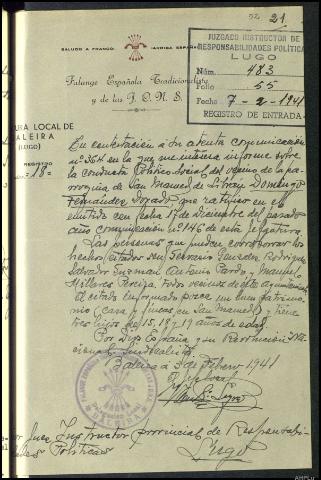 52 21
SALUDO A FRANCO ¡ARRIBA ESPAÑA!
JUZGADO INSTRUCTOR DE
RESPONSABILIDADES POLITICAS
LUGO
Núm. 483
Folio 55
Fecha 7-2-1941
REGISTRO DE ENTRADA
Falange Española Tradicionalista
y de las J. O. N. S.
URA LOCAL DE
ALEIRA
(LUGO)
REGISTRO
18=
En contestación a su atenta comunicación
nº 364 en la que me interesa informe sobre
la conducta Político Social del vecino de la pa-
rroquia de San Manuel de Librán Domingo
Fernández Dorado que ya tuvo en el
emitido con fecha 17 de Diciembre del pasado
año comunicación nº 146 de esta Jefatura
Las personas que pueden corroborar los
hechos citados son Servario González Rodríguez
Salvador Guzmán Antonio Pardo y Manuel
Pereiza, todos vecinos de este
El citado informado posee un buen patrimo-
nio (casa y fincas en San Manuel) y tiene
tres hijos de 15, 18 y 19 años de edad
Por Dios España y su Revolución Na-
cional Sindicalista
Baleira a 3 de Febrero 1941
BALEIRA
Juez Instructor provincial de Responsabi-
lidades Políticas
Lugo